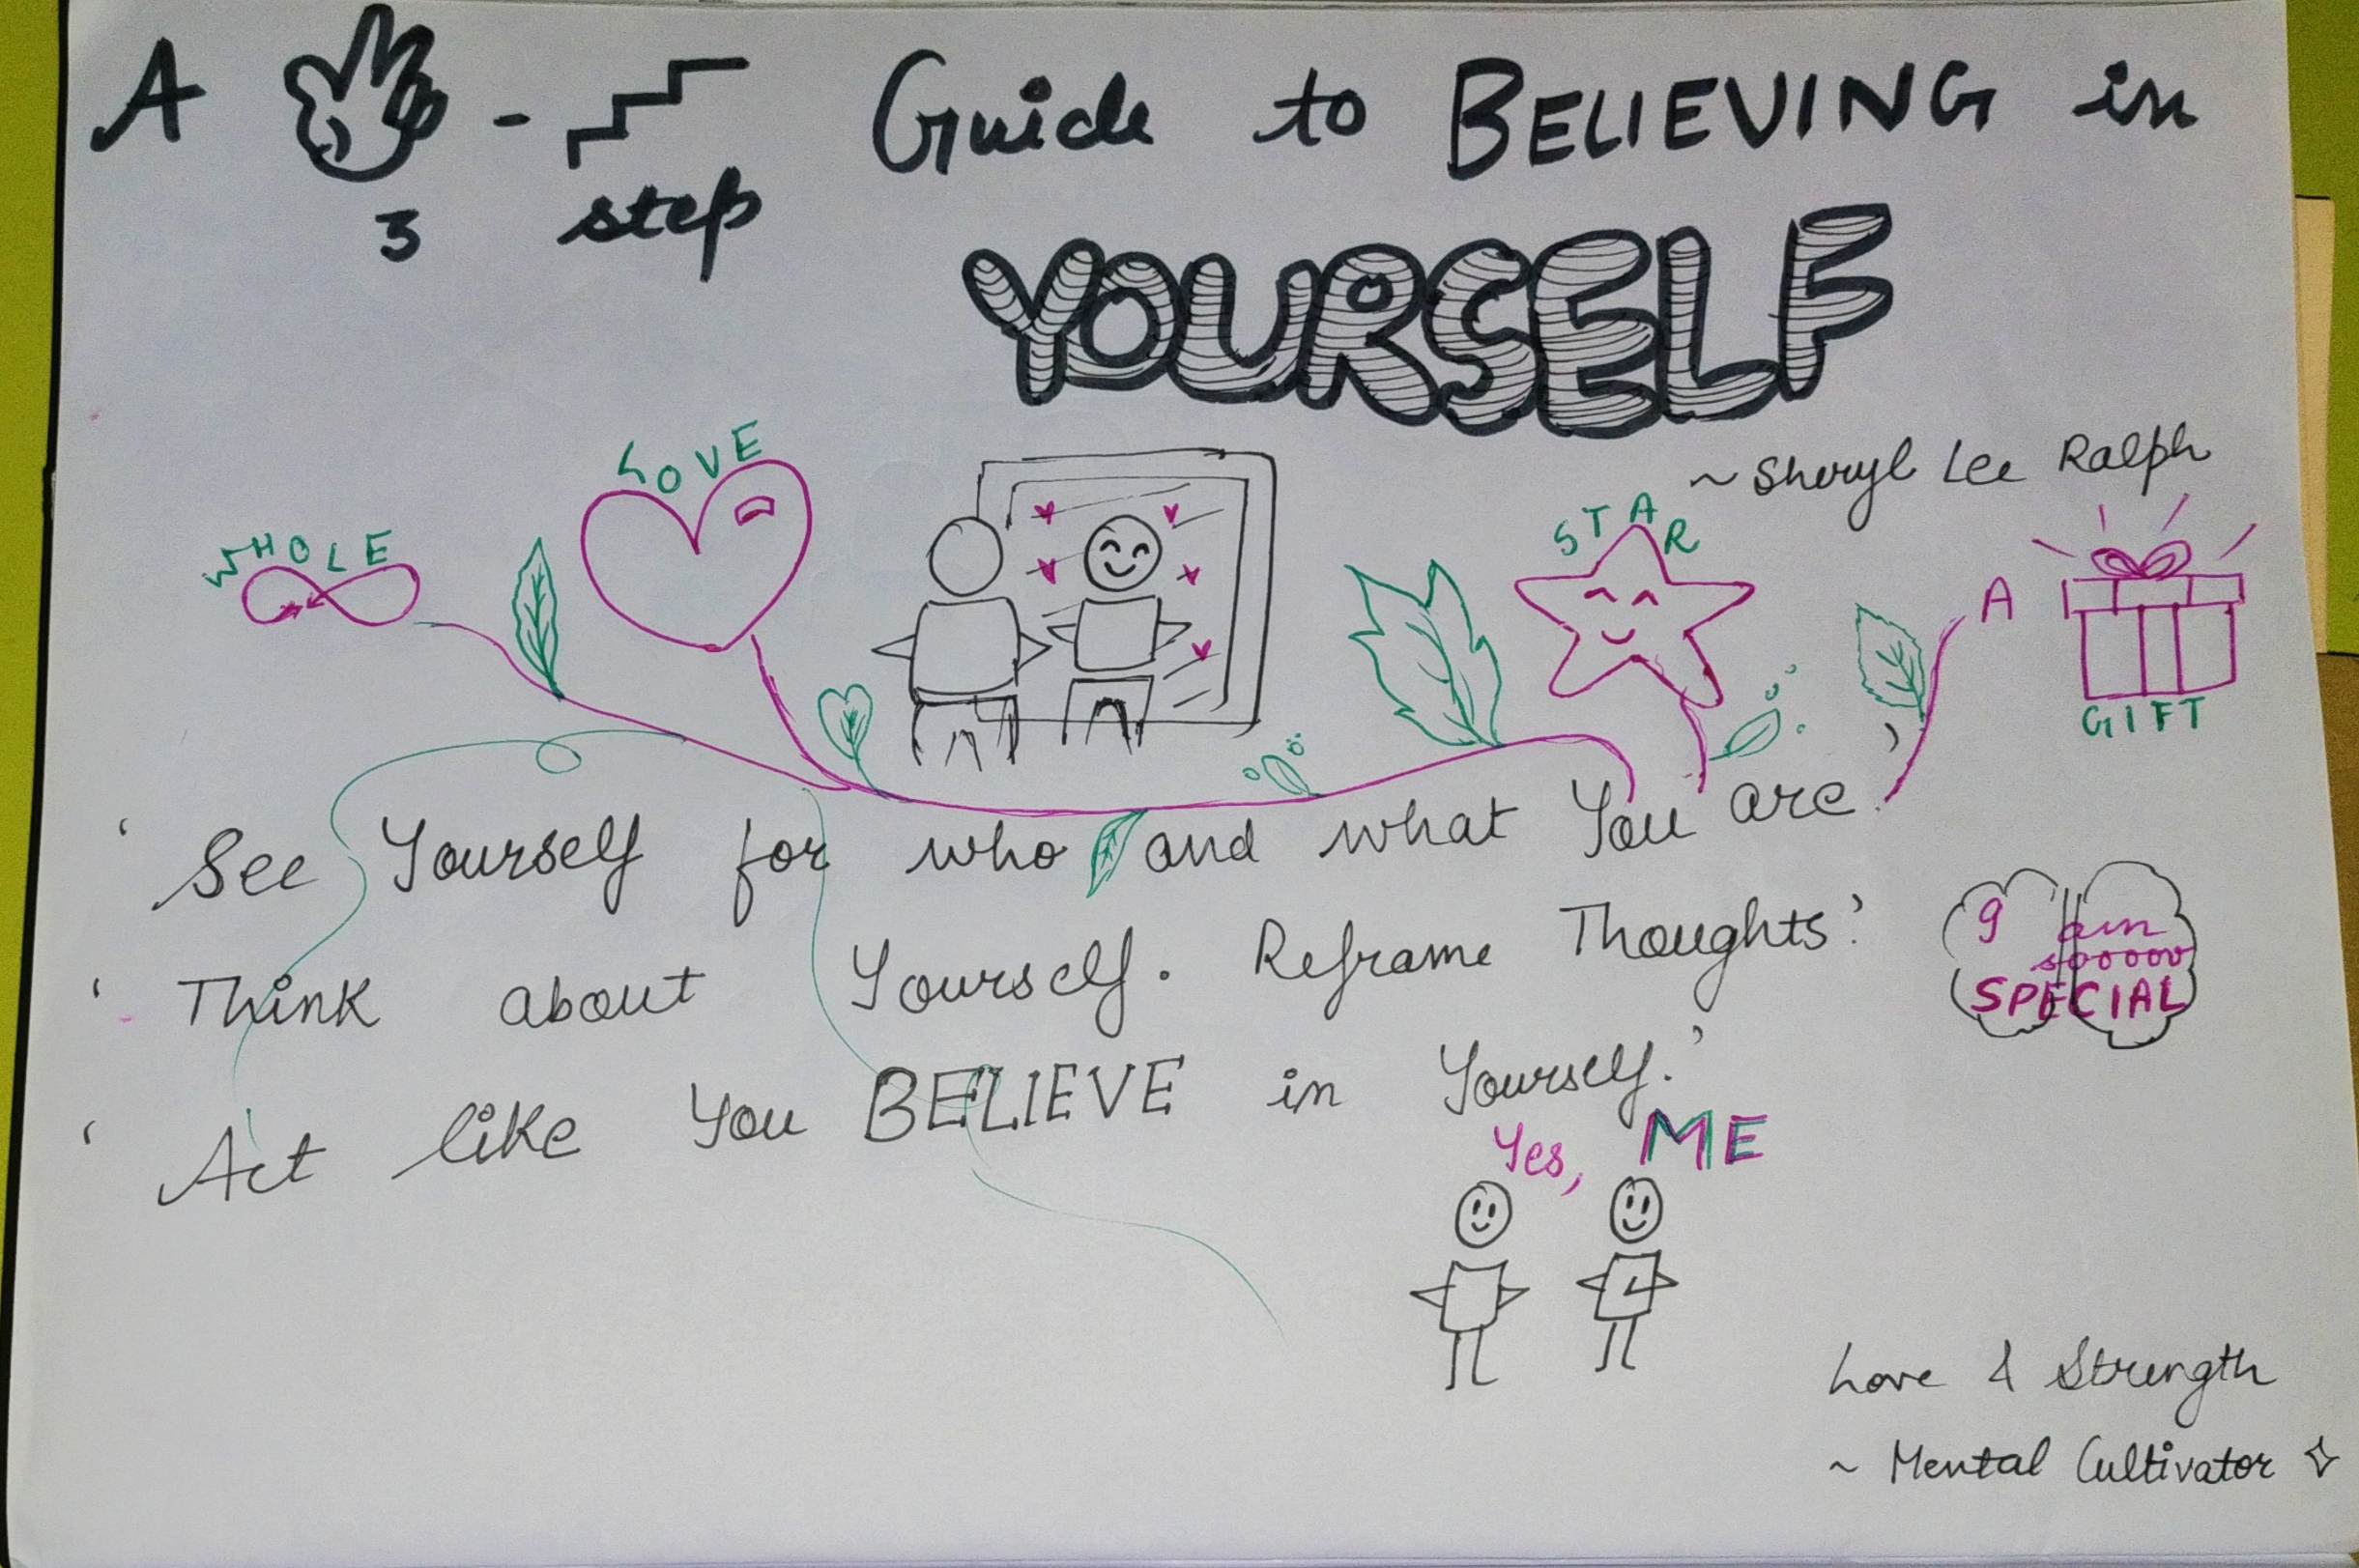 A - Guide to BELIEVING in
3 step
YOURSELF
~ Sheryl Lee Ralph
WHOLE
LOVE
STAR
A
GIFT
' See Yourself for who and what You are.'
' Think about Yourself. Reframe Thoughts.'
I am
sooooo
SPECIAL
' Act like You BELIEVE in Yourself.'
Yes, ME
Love & Strength
~ Mental Cultivator